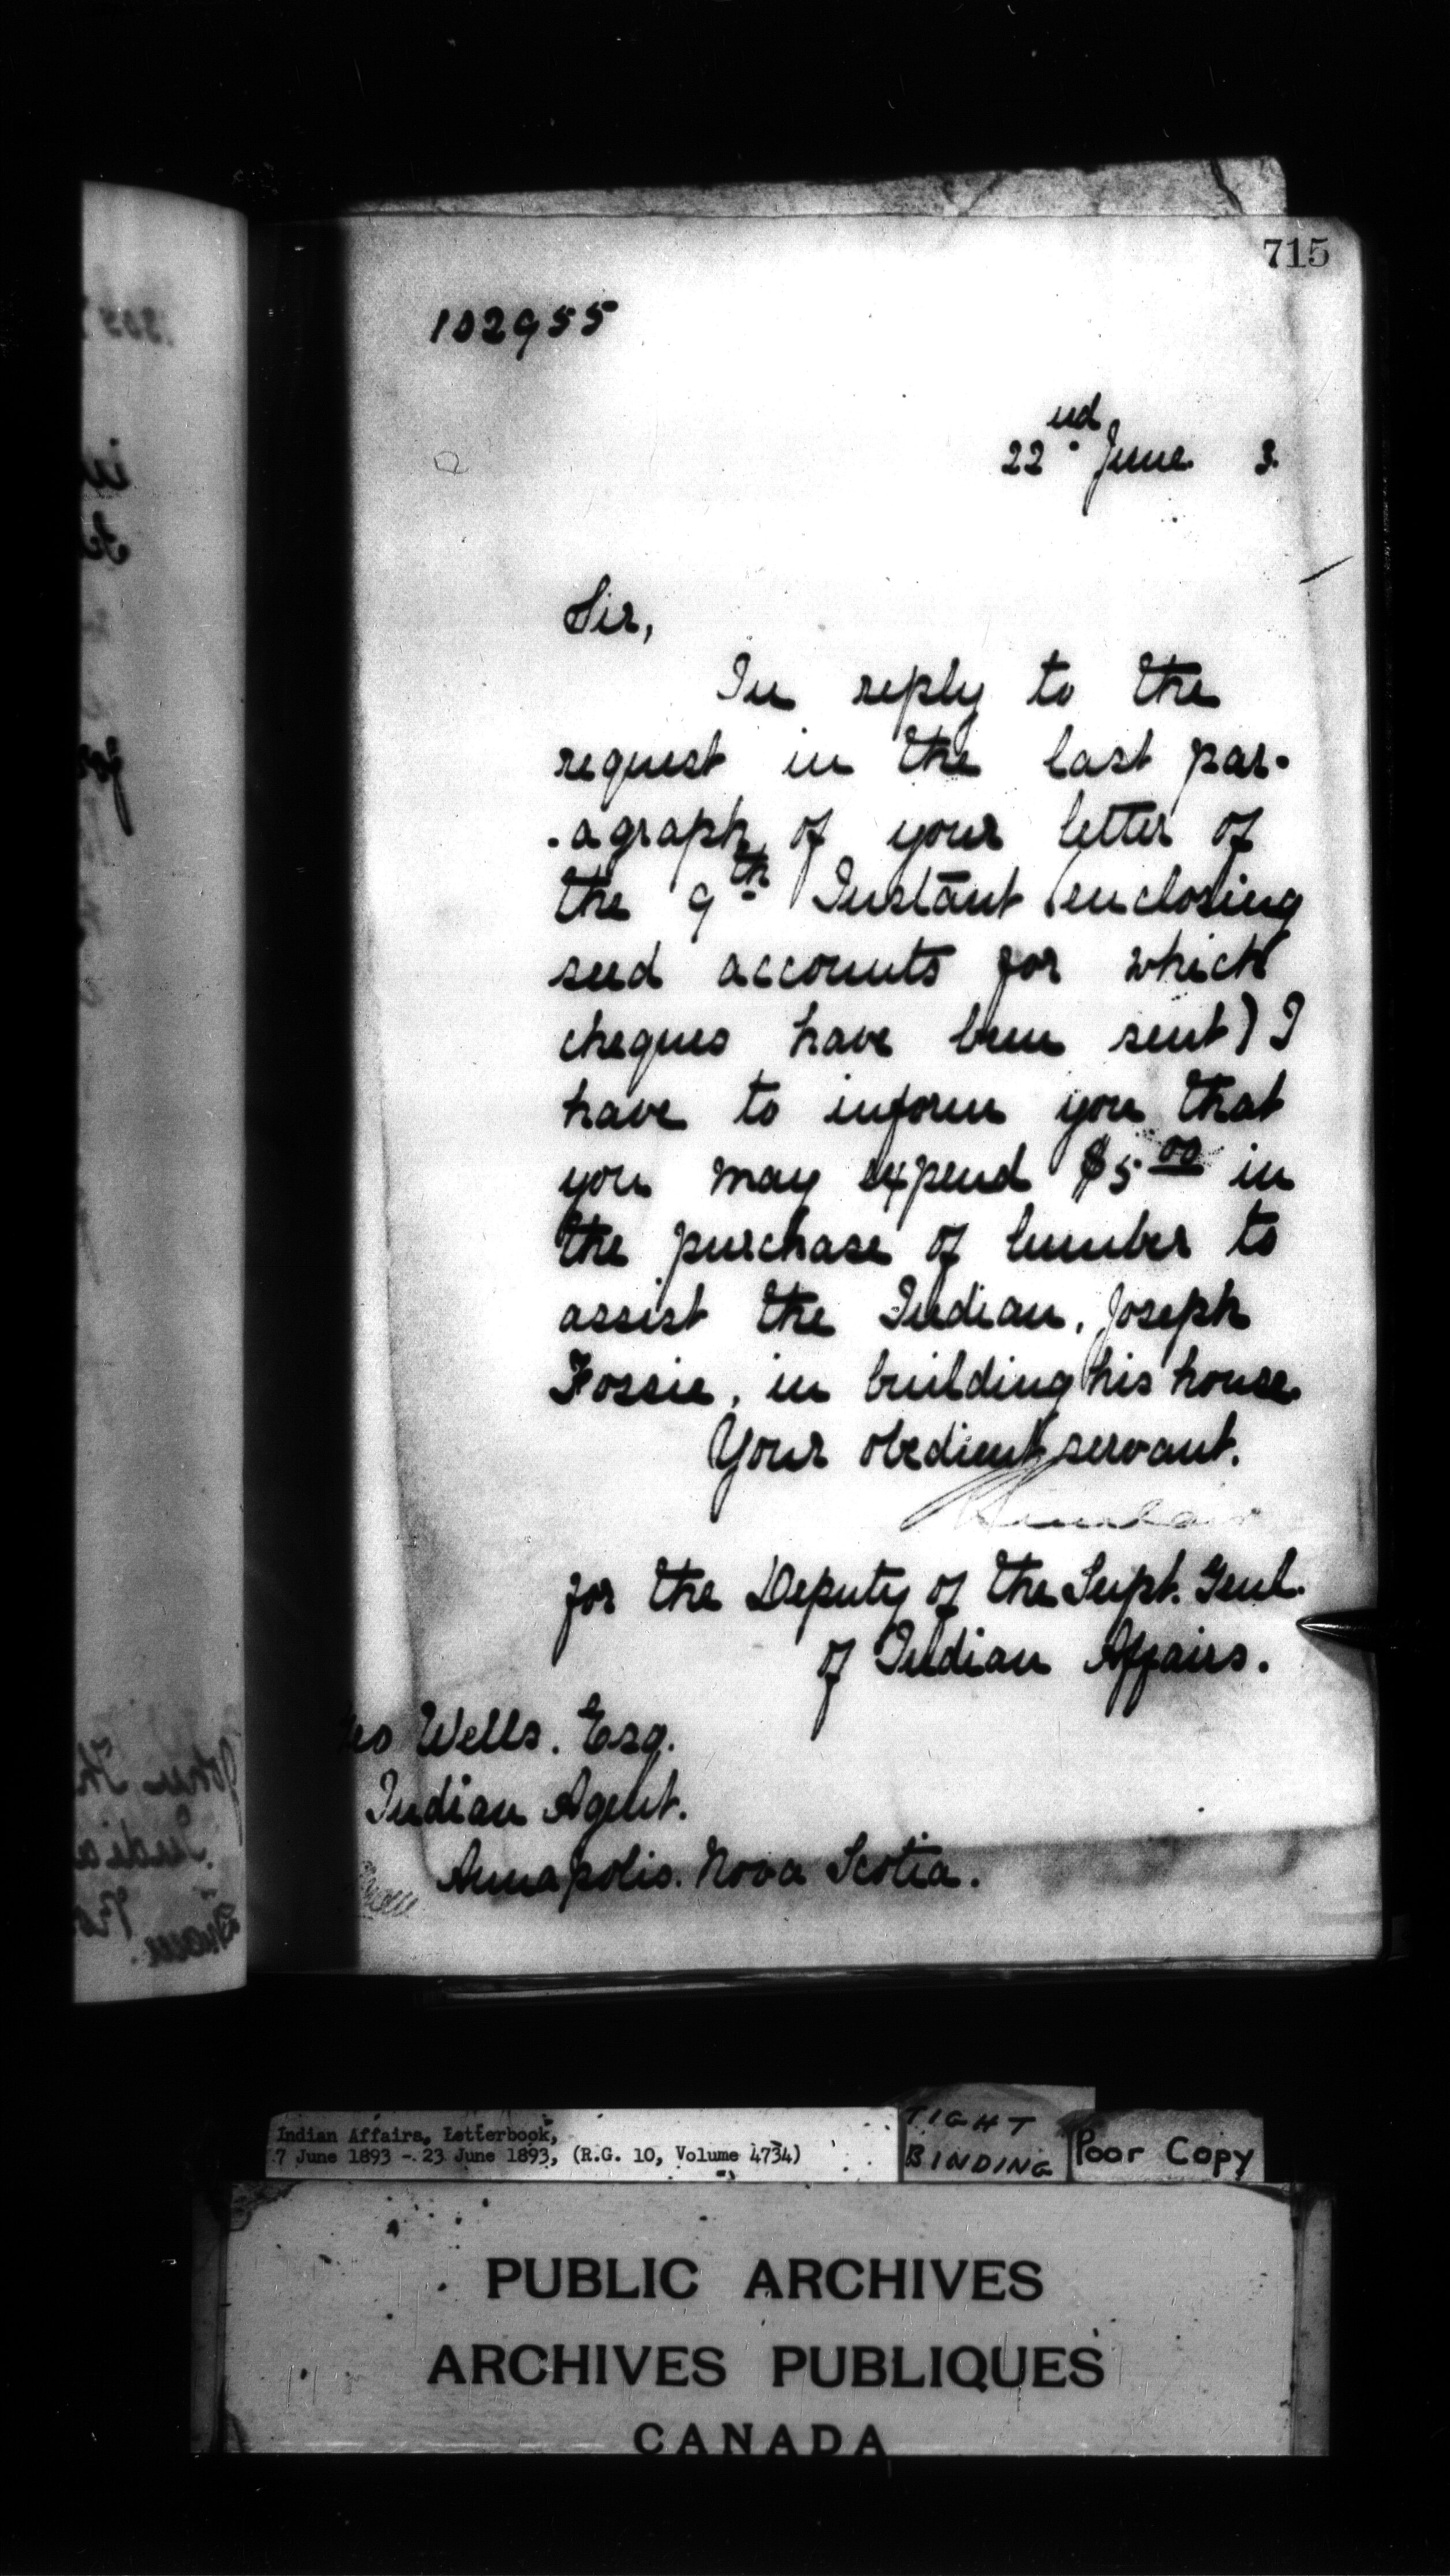 715
102955
22nd June 3.
Sir,
In reply to the
request in the last par-
-agraph of your letter of
the 9th Instant (enclosing
seed accounts for which
cheques have been sent) I
have to inform you that
you may expend $5.00 in
the purchase of lumber to
assist the Indian, Joseph
Fossie, in building his house.
Your obedient servant.
Sinclair
for the Deputy of the Supt. Genl.
of Indian Affairs.
Geo Wells. Esq.
Indian Agent.
Annapolis. Nova Scotia.
Indian Affairs, Letterbook,
7 June 1893 - 23 June 1893, (R.G. 10, Volume 4734)
TIGHT
BINDING
Poor Copy
PUBLIC ARCHIVES
ARCHIVES PUBLIQUES
CANADA